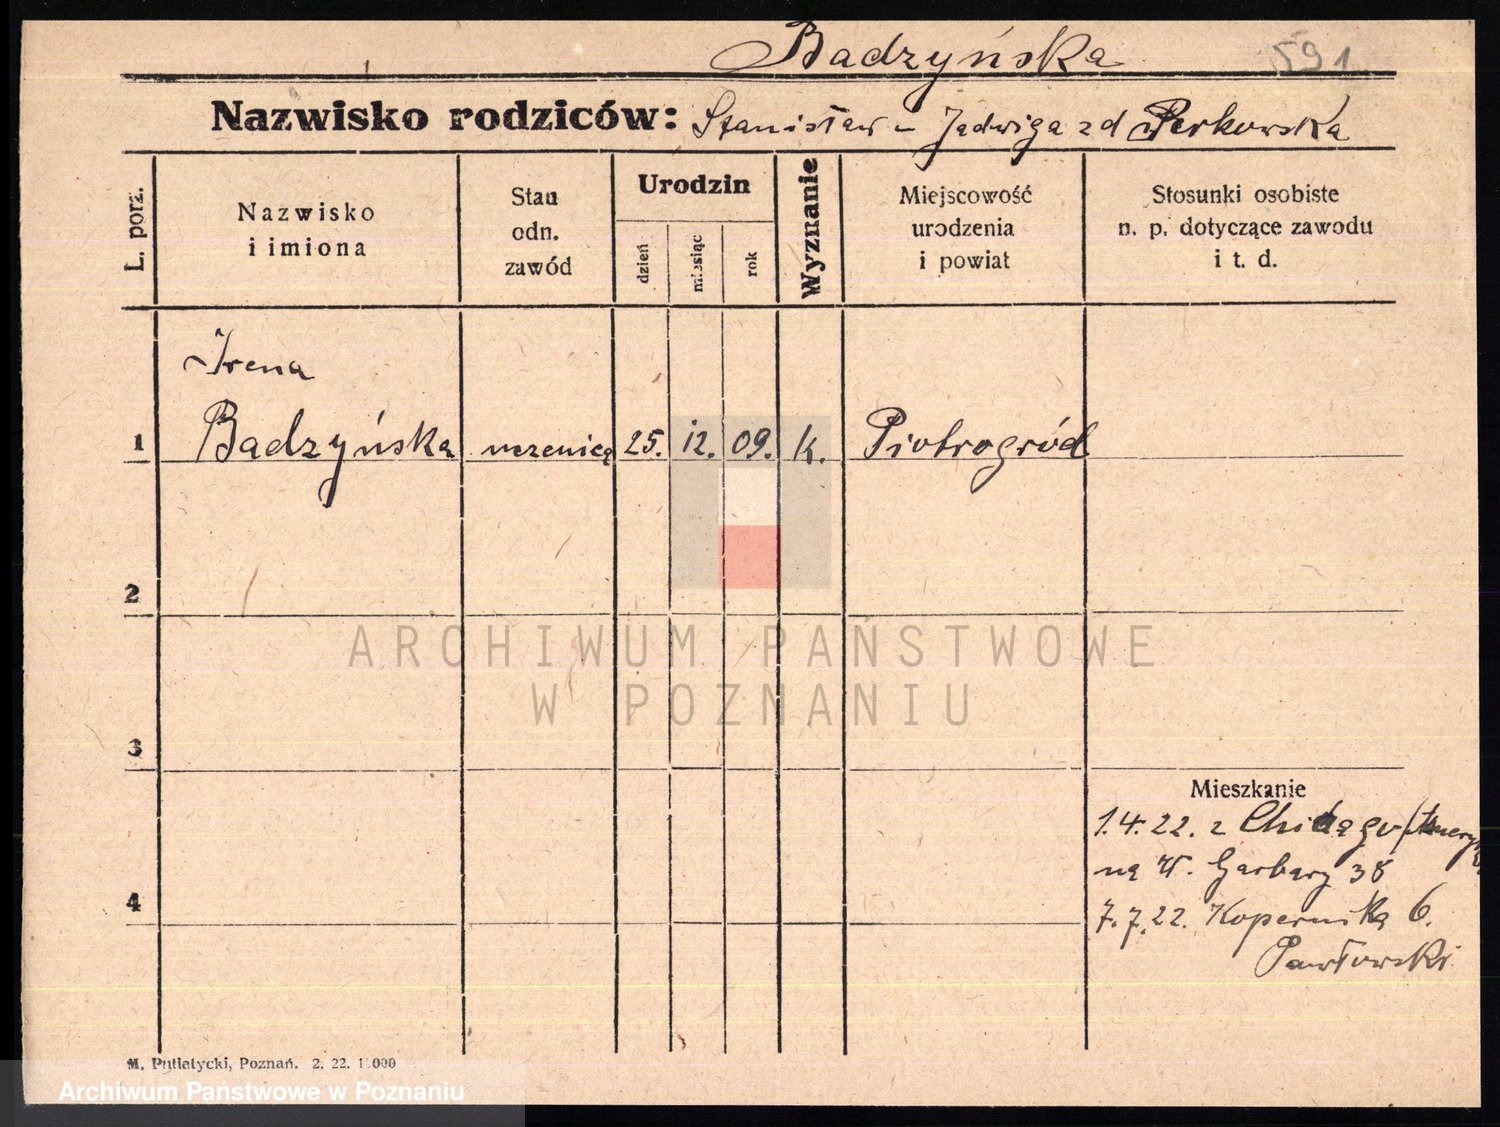 Badzyńska 591
Nazwisko rodziców: Stanisław u Jadwiga zd Perkowska
L. porz.
Nazwisko
i imiona
Stan
odn.
zawód
Urodzin
dzień
miesiąc
rok
Wyznanie
Miejscowość
urodzenia
i powiat
Stosunki osobiste
n. p. dotyczące zawodu
i t. d.
Irena
1 Badzyńska uczenica 25. 12. 09. k. Piotrogród
2
ARCHIWUM PAŃSTWOWE
W POZNANIU
3
Mieszkanie
1.4.22. z Chicago/Ameryka
na W. Garbary 38
4
7.7.22. Kopernika 6.
Pawłowski
M. Putiatycki, Poznań. 2. 22. 1 000
Archiwum Państwowe w Poznaniu